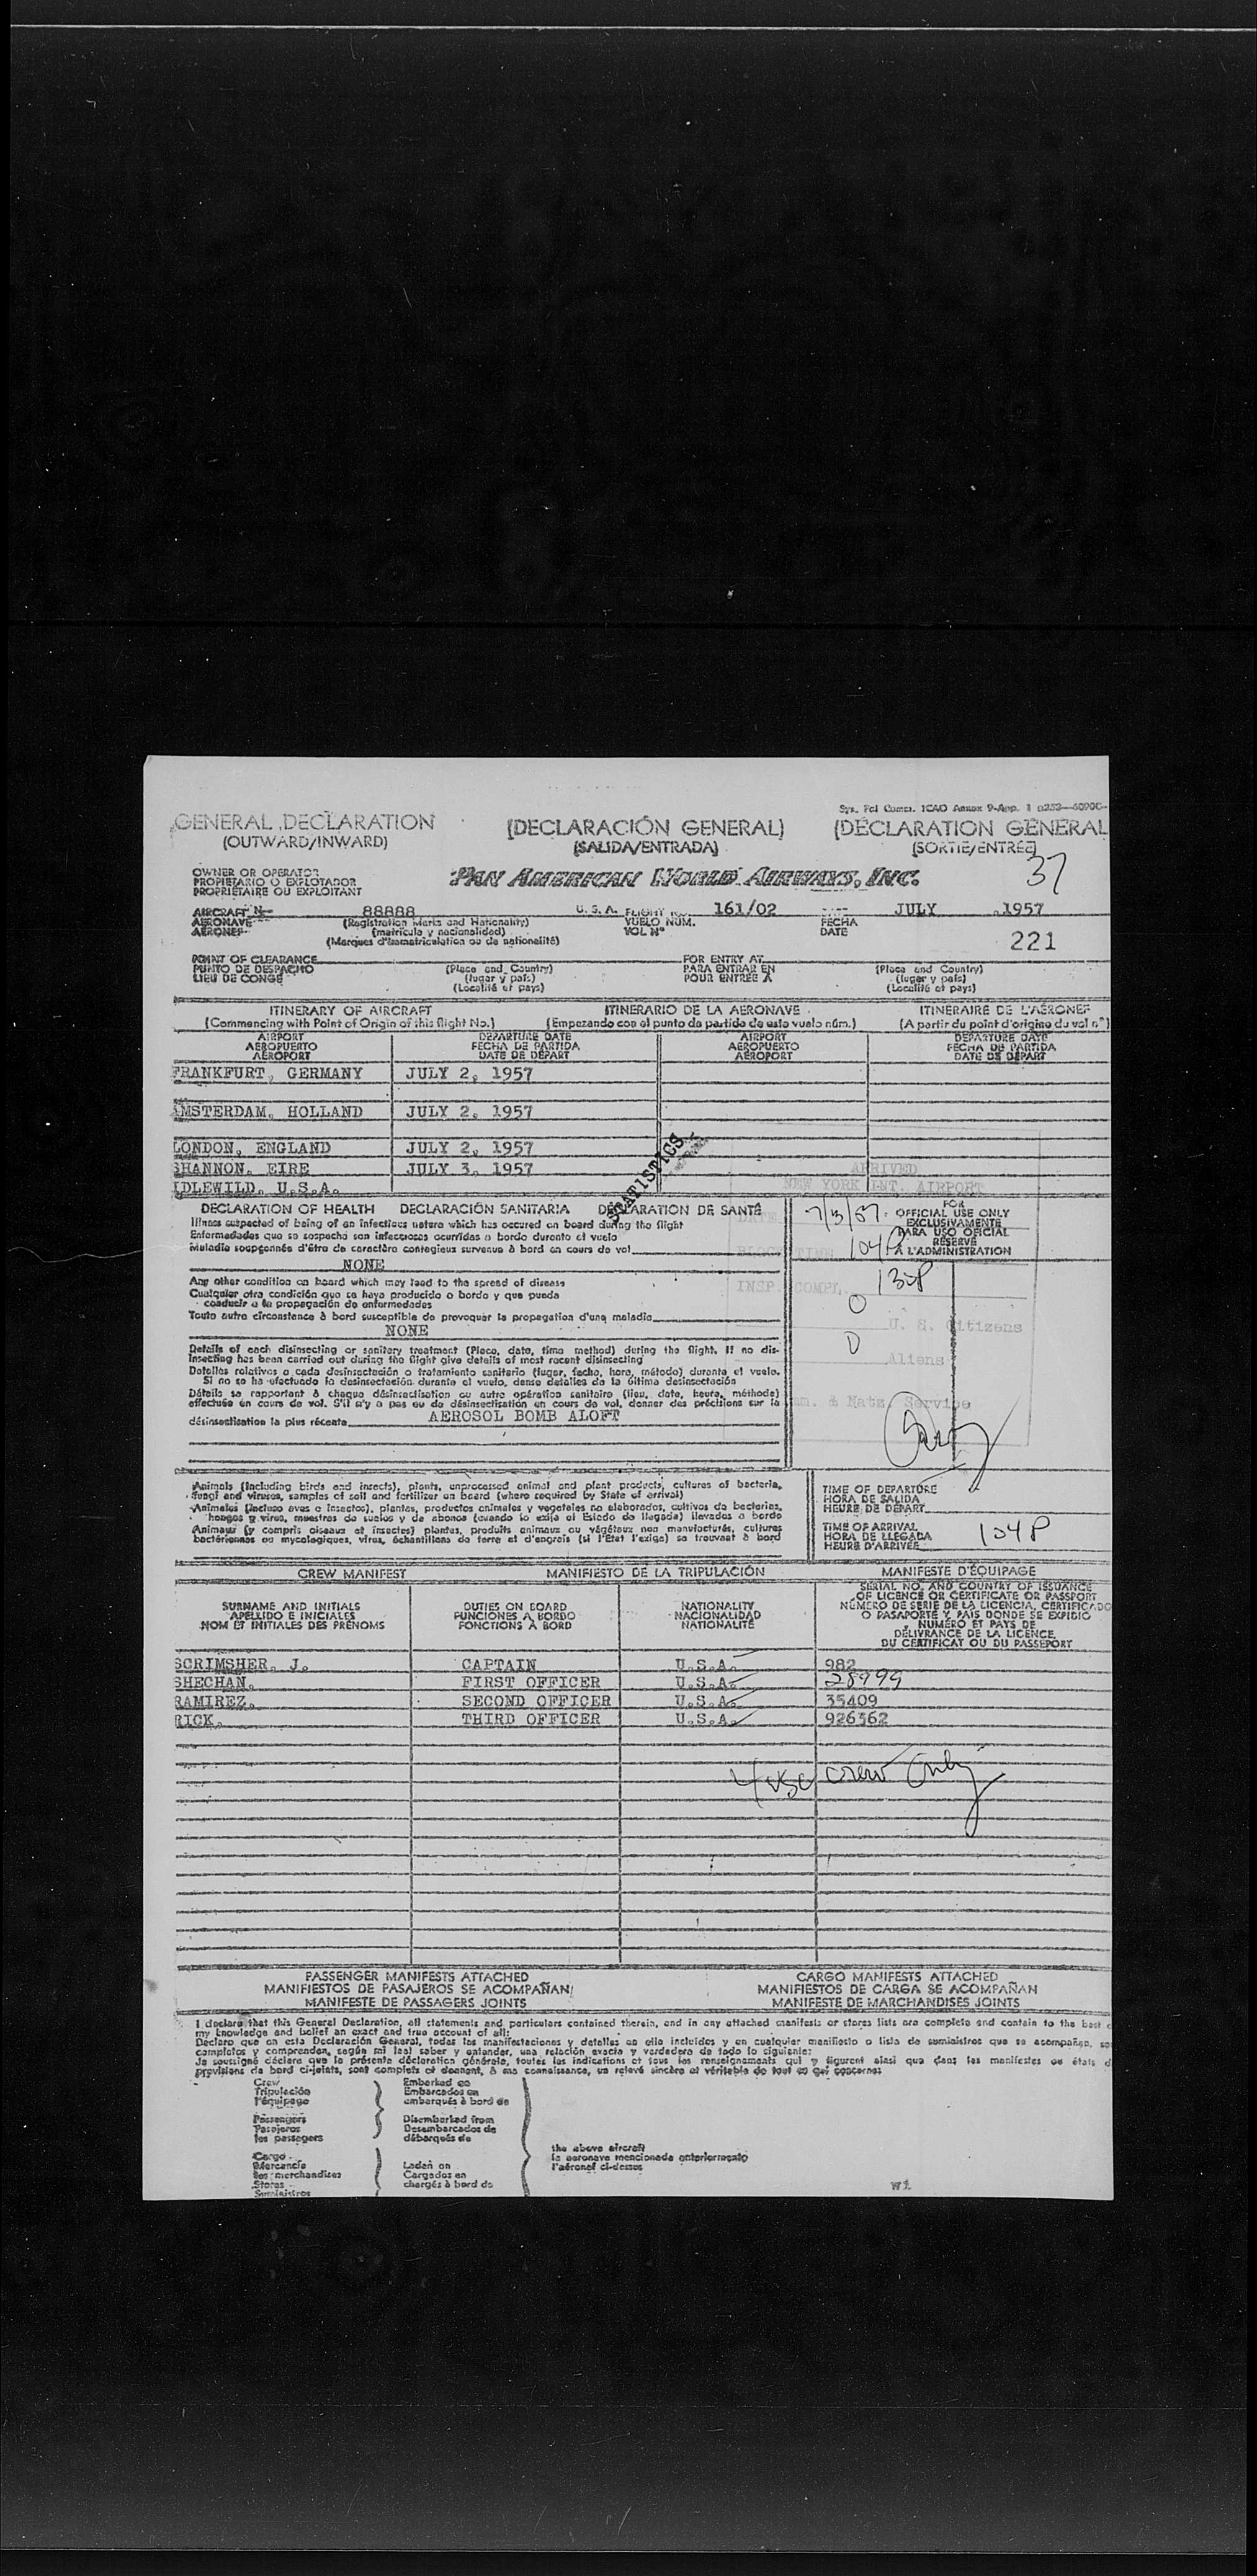 Sys. Fcl Comm. ICAO Annex 9-App. 1
GENERAL DECLARATION (DECLARACIÓN GENERAL) (DÉCLARATION GENERAL
(OUTWARD/INWARD) (SALIDA/ENTRADA) (SORTIE/ENTRÉE)
37
OWNER OR OPERATOR
PROPIETARIO O EXPLOTADOR
PROPRIÉTAIRE OU EXPLOITANT
PAN AMERICAN WORLD AIRWAYS, INC.
AIRCRAFT N- 88888 U. S. A. FLIGHT 161/02 JULY 1957
AERONAVE (Registration Marks and Nationality) VUELO NÚM. FECHA
AÉRONEF (matrícula y nacionalidad) VOL Nº DATE
(Marques d'immatriculation ou de nationalité)
221
POINT OF CLEARANCE FOR ENTRY AT
PUNTO DE DESPACHO (Place and Country) PARA ENTRAR EN (Place and Country)
LIEU DE CONGÉ (lugar y país) POUR ENTRÉE À (lugar y país)
(Localité et pays) (Localité et pays)
ITINERARY OF AIRCRAFT ITINERARIO DE LA AERONAVE ITINÉRAIRE DE L'AÉRONEF
(Commencing with Point of Origin of this flight No.) (Empezando con el punto de partida de este vuelo núm.) (A partir du point d'origine du vol n°)
AIRPORT DEPARTURE DATE AIRPORT DEPARTURE DATE
AEROPUERTO FECHA DE PARTIDA AEROPUERTO FECHA DE PARTIDA
AÉROPORT DATE DE DÉPART AÉROPORT DATE DE DÉPART
FRANKFURT, GERMANY JULY 2, 1957
AMSTERDAM, HOLLAND JULY 2, 1957
LONDON, ENGLAND JULY 2, 1957
SHANNON, EIRE JULY 3, 1957
IDLEWILD, U.S.A.
STATISTICS
ARRIVED
NEW YORK INT. AIRPORT
DATE 7/3/57
BLOCK TIME 104P
INSP. COMPL. 130P
0 U. S. Citizens
0 Aliens
Imm. & Natz. Service
DECLARATION OF HEALTH DECLARACIÓN SANITARIA DÉCLARATION DE SANTÉ
Illness suspected of being of an infectious nature which has occured on board during the flight
Enfermedades que se sospecha son infecciosas ocurridas a bordo durante el vuelo
Maladie soupçonnés d'être de caractère contagieux survenue à bord en cours de vol
NONE
FOR
OFFICIAL USE ONLY
EXCLUSIVAMENTE
PARA USO OFICIAL
RÉSERVÉ
À L'ADMINISTRATION
Any other condition on board which may lead to the spread of disease
Cualquier otra condición que se haya producido a bordo y que pueda
conducir a la propagación de enfermedades
Toute autre circonstance à bord susceptible de provoquer la propagation d'une maladie
NONE
Details of each disinsecting or sanitary treatment (Place, date, time method) during the flight. If no dis-
insecting has been carried out during the flight give details of most recent disinsecting
Detalles relativos a cada desinsectación o tratamiento sanitario (lugar, fecha, hora, método) durante el vuelo.
Si no se ha efectuado la desinsectación durante el vuelo, dense detalles de la última desinsectación
Détails se rapportant à chaque désinsectisation ou autre opération sanitaire (lieu, date, heure, méthode)
effectuée en cours de vol. S'il n'y a pas eu de désinsectisation en cours de vol, donner des précisions sur la
désinsectisation la plus récente AEROSOL BOMB ALOFT
Animals (including birds and insects), plants, unprocessed animal and plant products, cultures of bacteria,
fungi and viruses, samples of soil and fertilizer on board (where required by State of arrival)
Animales (incluso aves e insectos), plantas, productos animales y vegetales no elaborados, cultivos de bacterias,
hongos y virus, muestras de suelos y de abonos (cuando lo exija el Estado de llegada) llevados a bordo
Animaux (y compris oiseaux et insectes) plantes, produits animaux ou végétaux non manufacturés, cultures
bactériennes ou mycologiques, virus, échantillons de terre et d'engrais (si l'État l'exige) se trouvant à bord
TIME OF DEPARTURE
HORA DE SALIDA
HEURE DE DÉPART
TIME OF ARRIVAL
HORA DE LLEGADA 104P
HEURE D'ARRIVÉE
CREW MANIFEST MANIFIESTO DE LA TRIPULACIÓN MANIFESTE D'ÉQUIPAGE
SURNAME AND INITIALS
APELLIDO E INICIALES
NOM ET INITIALES DES PRÉNOMS
DUTIES ON BOARD
FUNCIONES A BORDO
FONCTIONS À BORD
NATIONALITY
NACIONALIDAD
NATIONALITÉ
SERIAL NO. AND COUNTRY OF ISSUANCE
OF LICENCE OR CERTIFICATE OR PASSPORT
NÚMERO DE SERIE DE LA LICENCIA, CERTIFICADO
O PASAPORTE Y PAÍS DONDE SE EXPIDIÓ
NUMÉRO ET PAYS DE
DÉLIVRANCE DE LA LICENCE,
DU CERTIFICAT OU DU PASSEPORT
SCRIMSHER, J. CAPTAIN U.S.A. 982
SHECHAN, FIRST OFFICER U.S.A. 28999
RAMIREZ, SECOND OFFICER U.S.A. 35409
RICK, THIRD OFFICER U.S.A. 926362
4 usc crew only
PASSENGER MANIFESTS ATTACHED CARGO MANIFESTS ATTACHED
MANIFIESTOS DE PASAJEROS SE ACOMPAÑAN MANIFIESTOS DE CARGA SE ACOMPAÑAN
MANIFESTE DE PASSAGERS JOINTS MANIFESTE DE MARCHANDISES JOINTS
I declare that this General Declaration, all statements and particulars contained therein, and in any attached manifests or stores lists are complete and contain to the best
my knowledge and belief an exact and true account of all:
Declaro que en esta Declaración General, todas las manifestaciones y detalles en ella incluidos y en cualquier manifiesto o lista de suministros que se acompañen, so
completos y comprenden, según mi leal saber y entender, una relación exacta y verdadera de todo lo siguiente:
Je soussigné déclare que la présente déclaration générale, toutes les indications et tous les renseignements qui y figurent ainsi que dans les manifestes ou états d
provisions de bord ci-joints, sont complets et donnent, à ma connaissance, un relevé sincère et véritable de tout ce qui concerne:
Crew Embarked on
Tripulación Embarcados en
l'équipage embarqués à bord de
Passengers Disembarked from
Pasajeros Desembarcados de
les passagers débarqués de
the above aircraft
la aeronave mencionada anteriormente
l'aéronef ci-dessus
Cargo
Mercancía Laden on
les merchandises Cargados en
Stores chargés à bord de
Suministros
W1